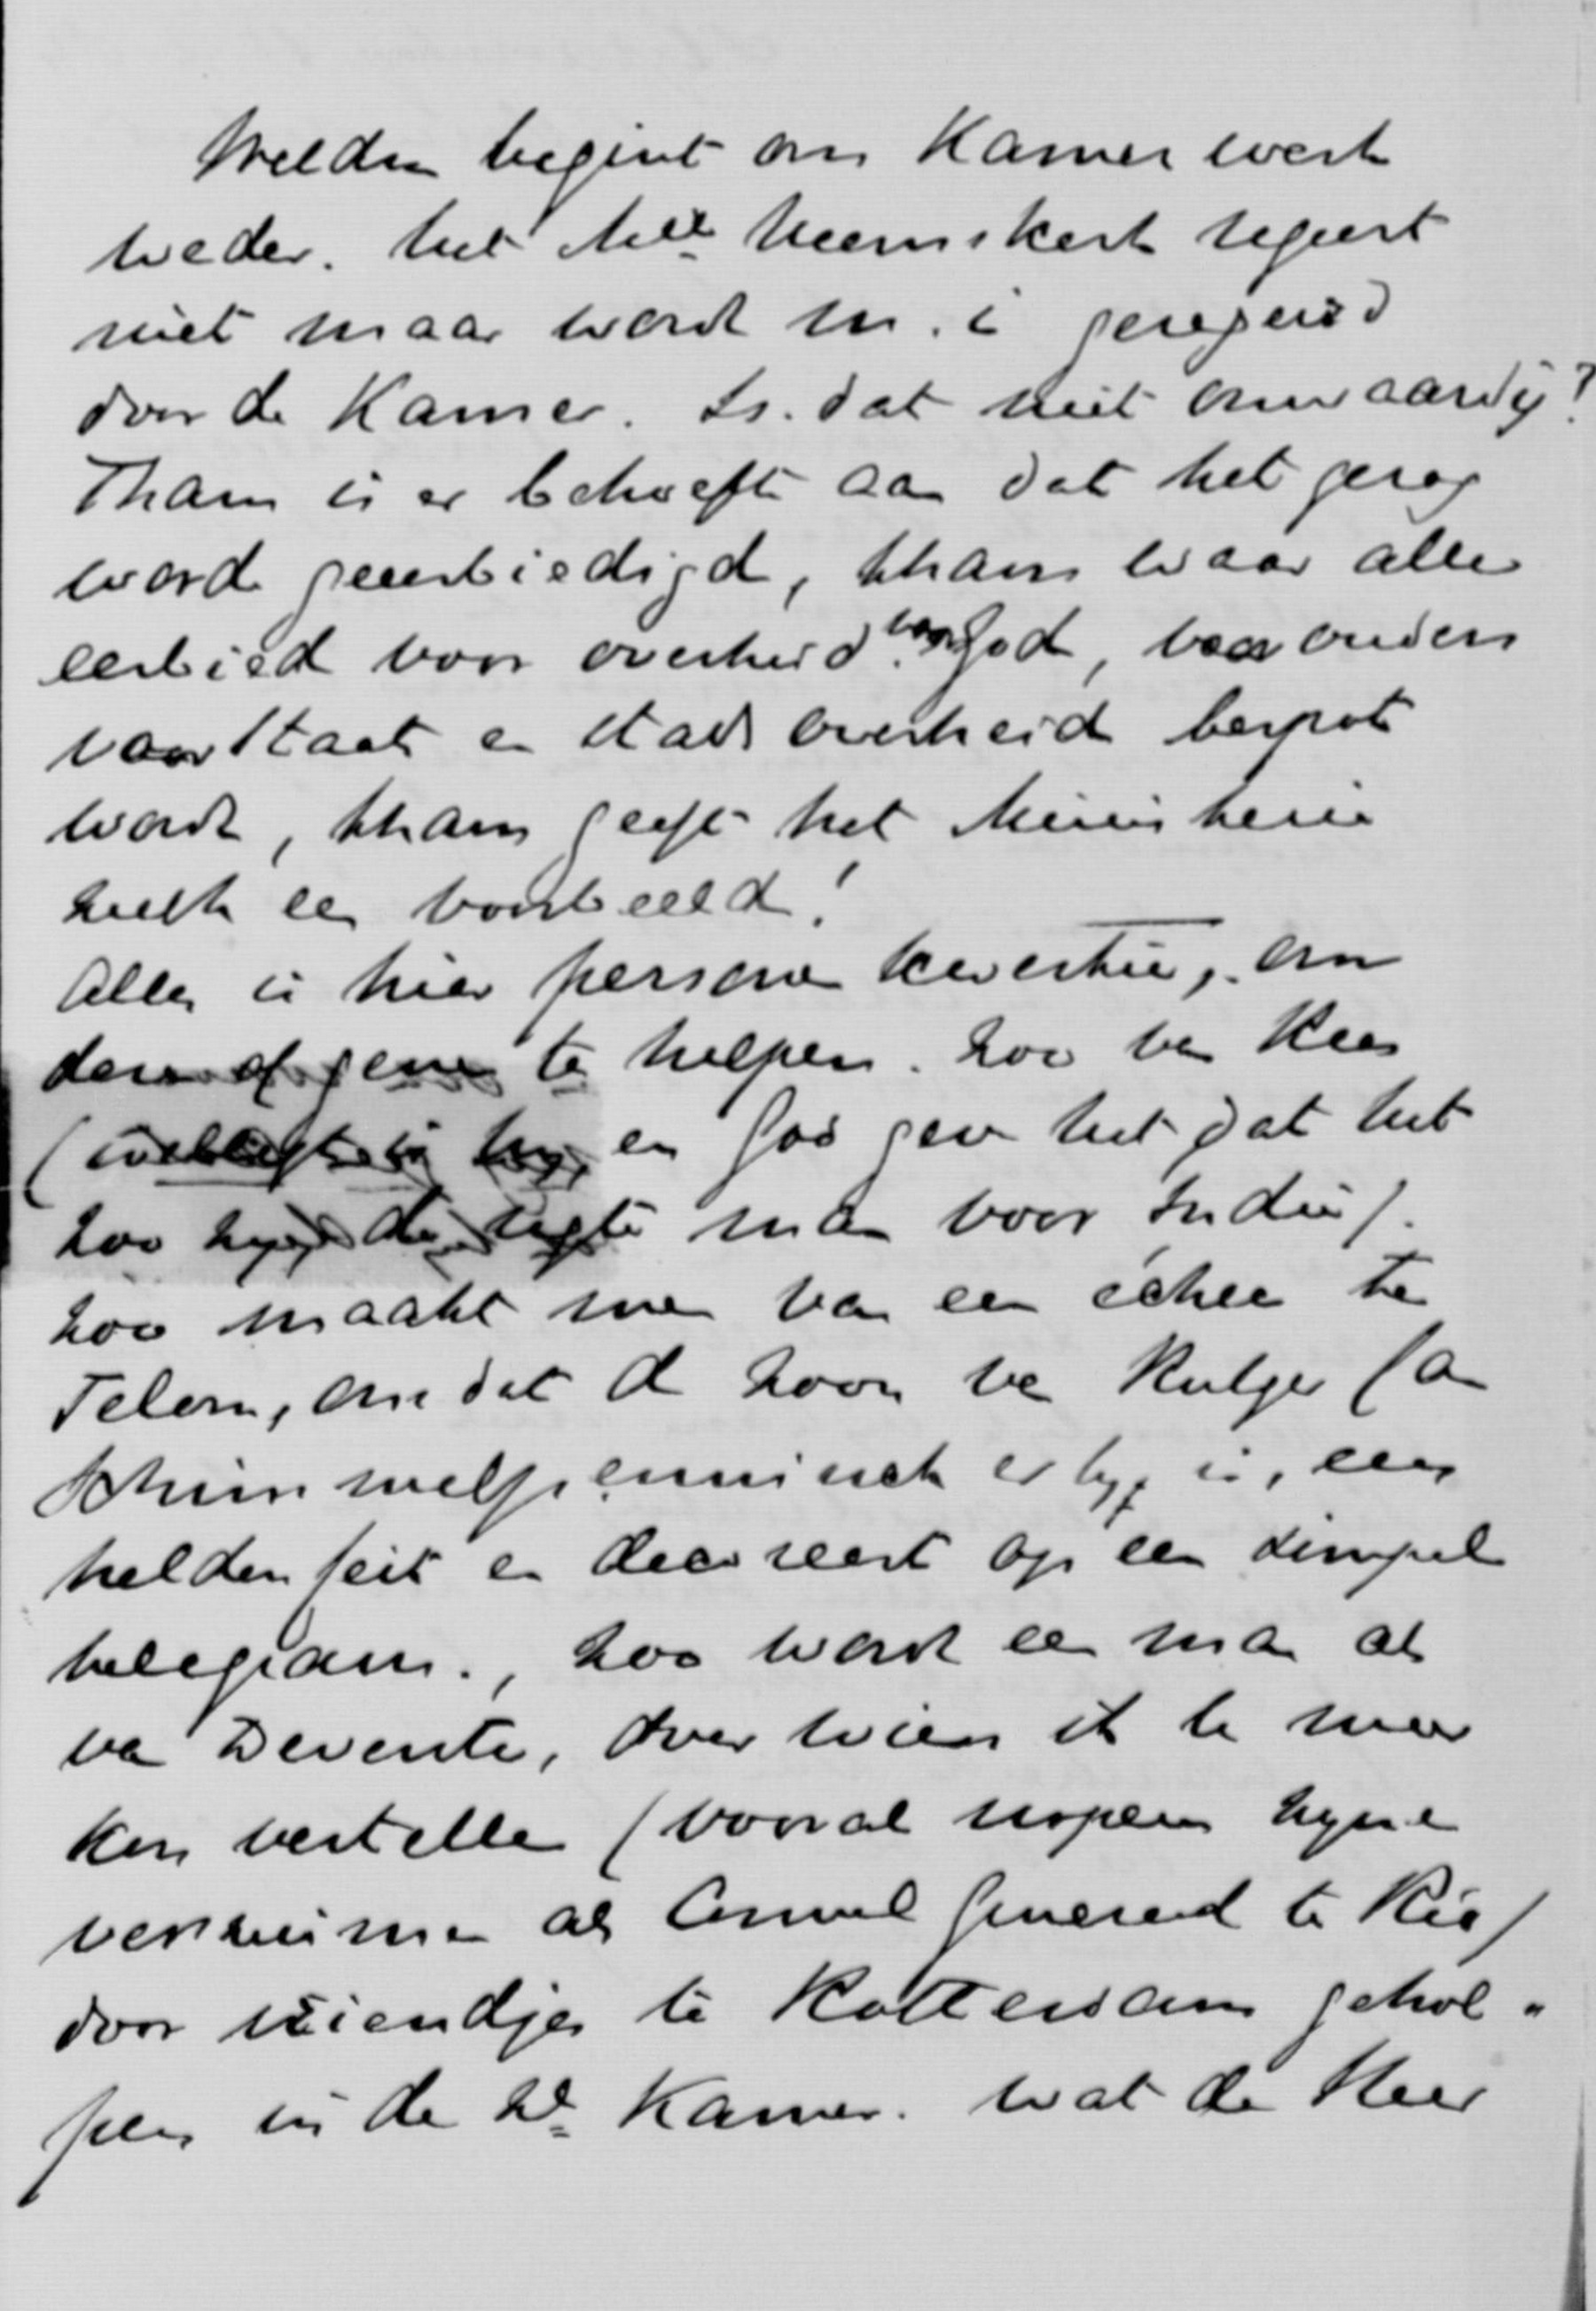 Melden begint ons Kamerwerk
weder. het Min. Heemskerk regeert
niet maar wordt m. i geregeerd
door de Kamer. Is dat niet onwaardig?
Thans is er behoefte aan dat het gezag
word geeerbiedigd, thans waar alle
eerbied voor overheid voor God, voor ouders
voor Staat en stads overheid bespot
wordt, thans geeft het Ministerie
zulk een voorbeeld!
Alles is hier personen kwestie, om
dezen of genen te helpen. Zoo van Rees
(wellicht is hij, en God geve het dat het
zoo zij, de regte man voor Indie).
Zoo maakt men van een echec te
Telom, omdat de zoon van Rutger Jan
Schimmelpenninck er bij is, een
heldenfeit en decoreert op een simpel
telegram., Zoo wordt een man als
van Deventer, over wien ik te meer
kan vertellen (vooral nopens zijne
verzuimen als Consul Generaal te Rio)
door vriendjes te Rotterdam gehol-
pen in de 2e Kamer. wat de Heer